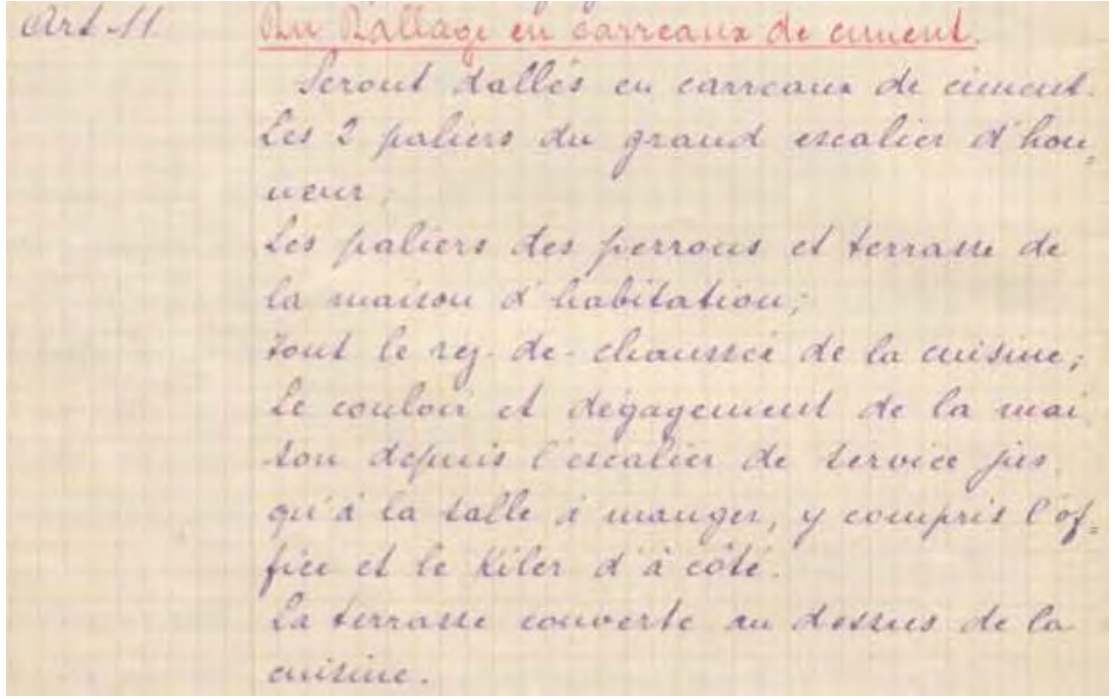 Art-11. Du Dallage en carreaux de ciment.
Seront dallés en carreaux de ciment.
Les 2 paliers du grand escalier d'hon=
neur;
Les paliers des perrons et terrasse de
la maison d'habitation;
Tout le rez-de-chaussée de la cuisine;
Le couloir et dégagement de la mai
son depuis l'escalier de service jus
qu'à la salle à manger, y compris l'of=
fice et le Kiler d'à côté.
La terrasse couverte au dessus de la
cuisine.